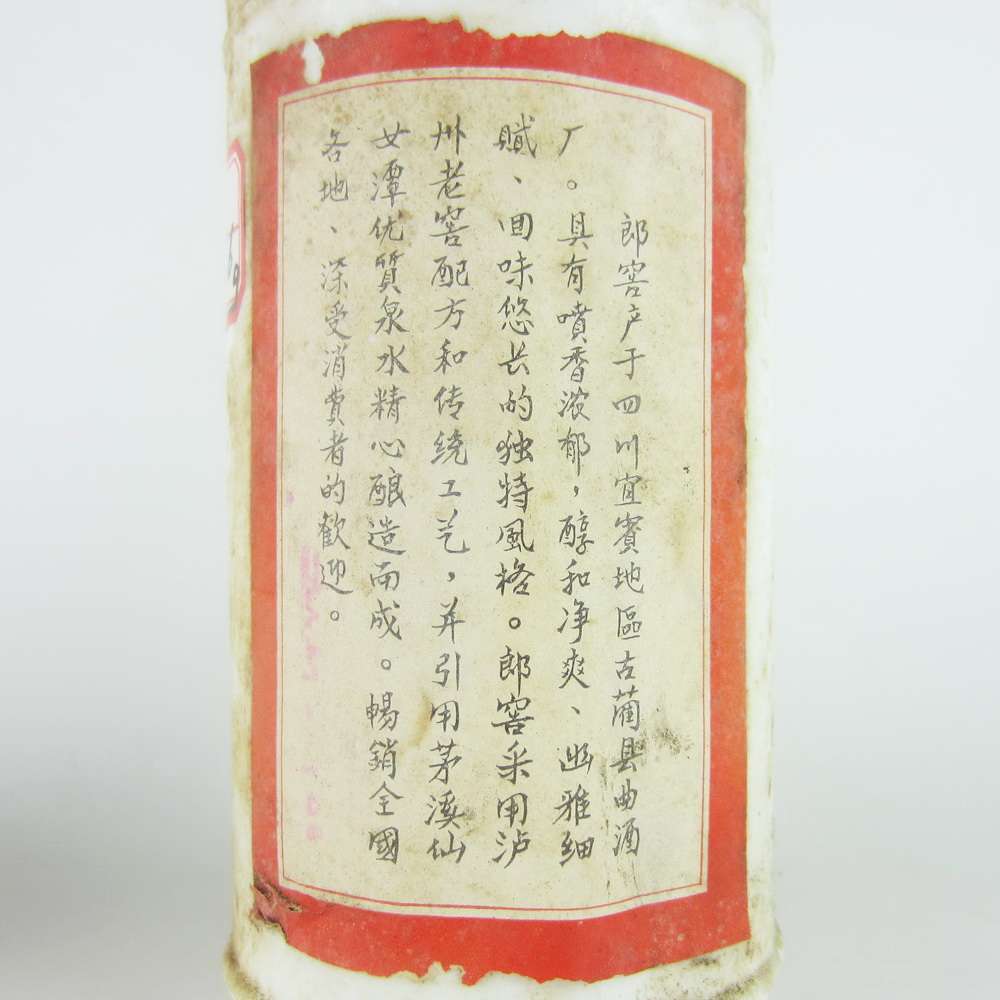 郎窖产于四川宜賓地區古藺县曲酒
厂。具有噴香浓郁，醇和净爽、幽雅细
賦、回味悠长的独特風格。郎窖采用泸
州老窖配方和传统工艺，并引用茅溪仙
女潭优質泉水精心酿造而成。暢銷全國
各地、深受消費者的歡迎。